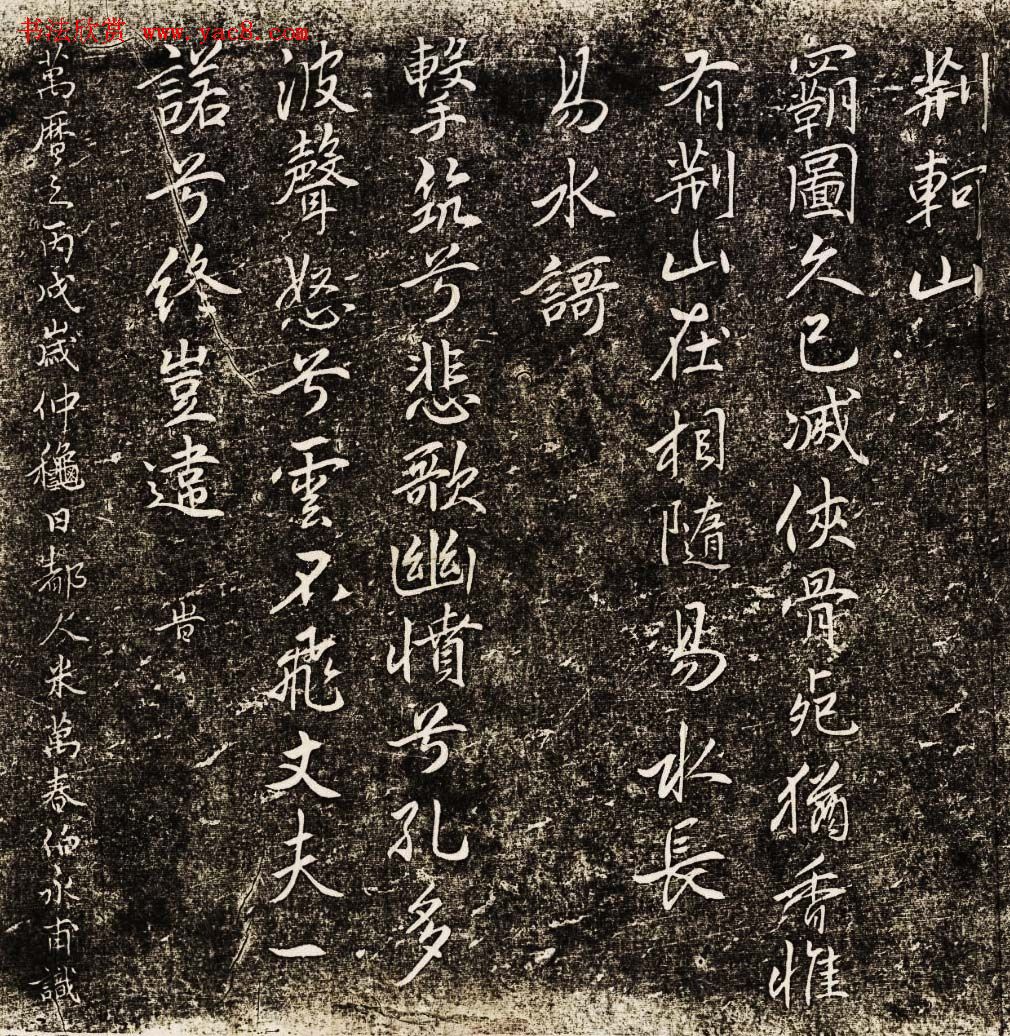 书法欣赏 www.yac8.com
荊軻山
覇圖久已滅俠骨死猶香惟
有荊山在相隨易水長
易水謌
擊筑兮悲歌幽憤兮孔多
波聲怒兮雲不飛丈夫一
諾兮終豈違 旹
萬曆之丙戌歲仲龝日都人米萬春伯永甫識